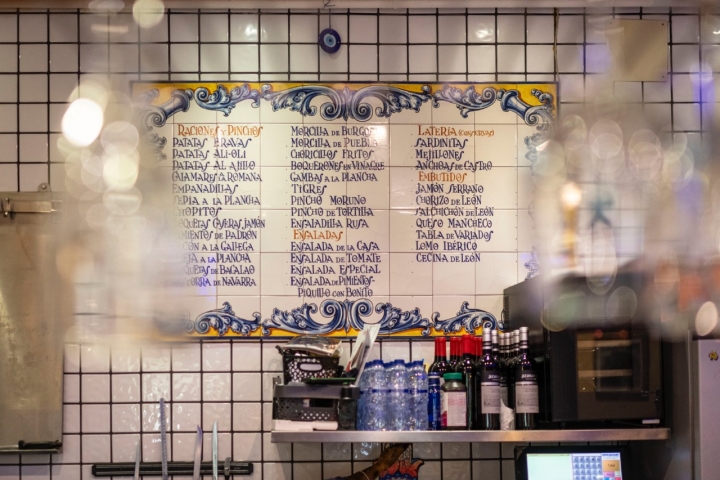 RACIONES Y PINCHOS
PATATAS BRAVAS
PATATAS ALI-OLI
PATATAS AL AJILLO
CALAMARES A LA ROMANA
EMPANADILLAS
SEPIA A LA PLANCHA
CHOPITOS
CASERAS JAMÓN
DE PADRÓN
A LA GALLEGA
A LA PLANCHA
DE BACALAO
DE NAVARRA
MORCILLA DE BURGOS
MORCILLA DE PUEBLA
CHORICILLOS FRITOS
BOQUERONES EN VINAGRE
GAMBAS A LA PLANCHA
TIGRES
PINCHO MORUNO
PINCHO DE TORTILLA
ENSALADILLA RUSA
ENSALADAS
ENSALADA DE LA CASA
ENSALADA DE TOMATE
ENSALADA ESPECIAL
ENSALADA DE PIMIENTOS-
PIQUILLO CON BONITO
LATERÍA (CONSERVAS)
SARDINITAS
MEJILLONES
ANCHOAS DE CASTRO
EMBUTIDOS
JAMÓN SERRANO
CHORIZO DE LEÓN
SALCHICHÓN DE LEÓN
QUESO MANCHEGO
TABLA DE VARIADOS
LOMO IBÉRICO
CECINA DE LEÓN